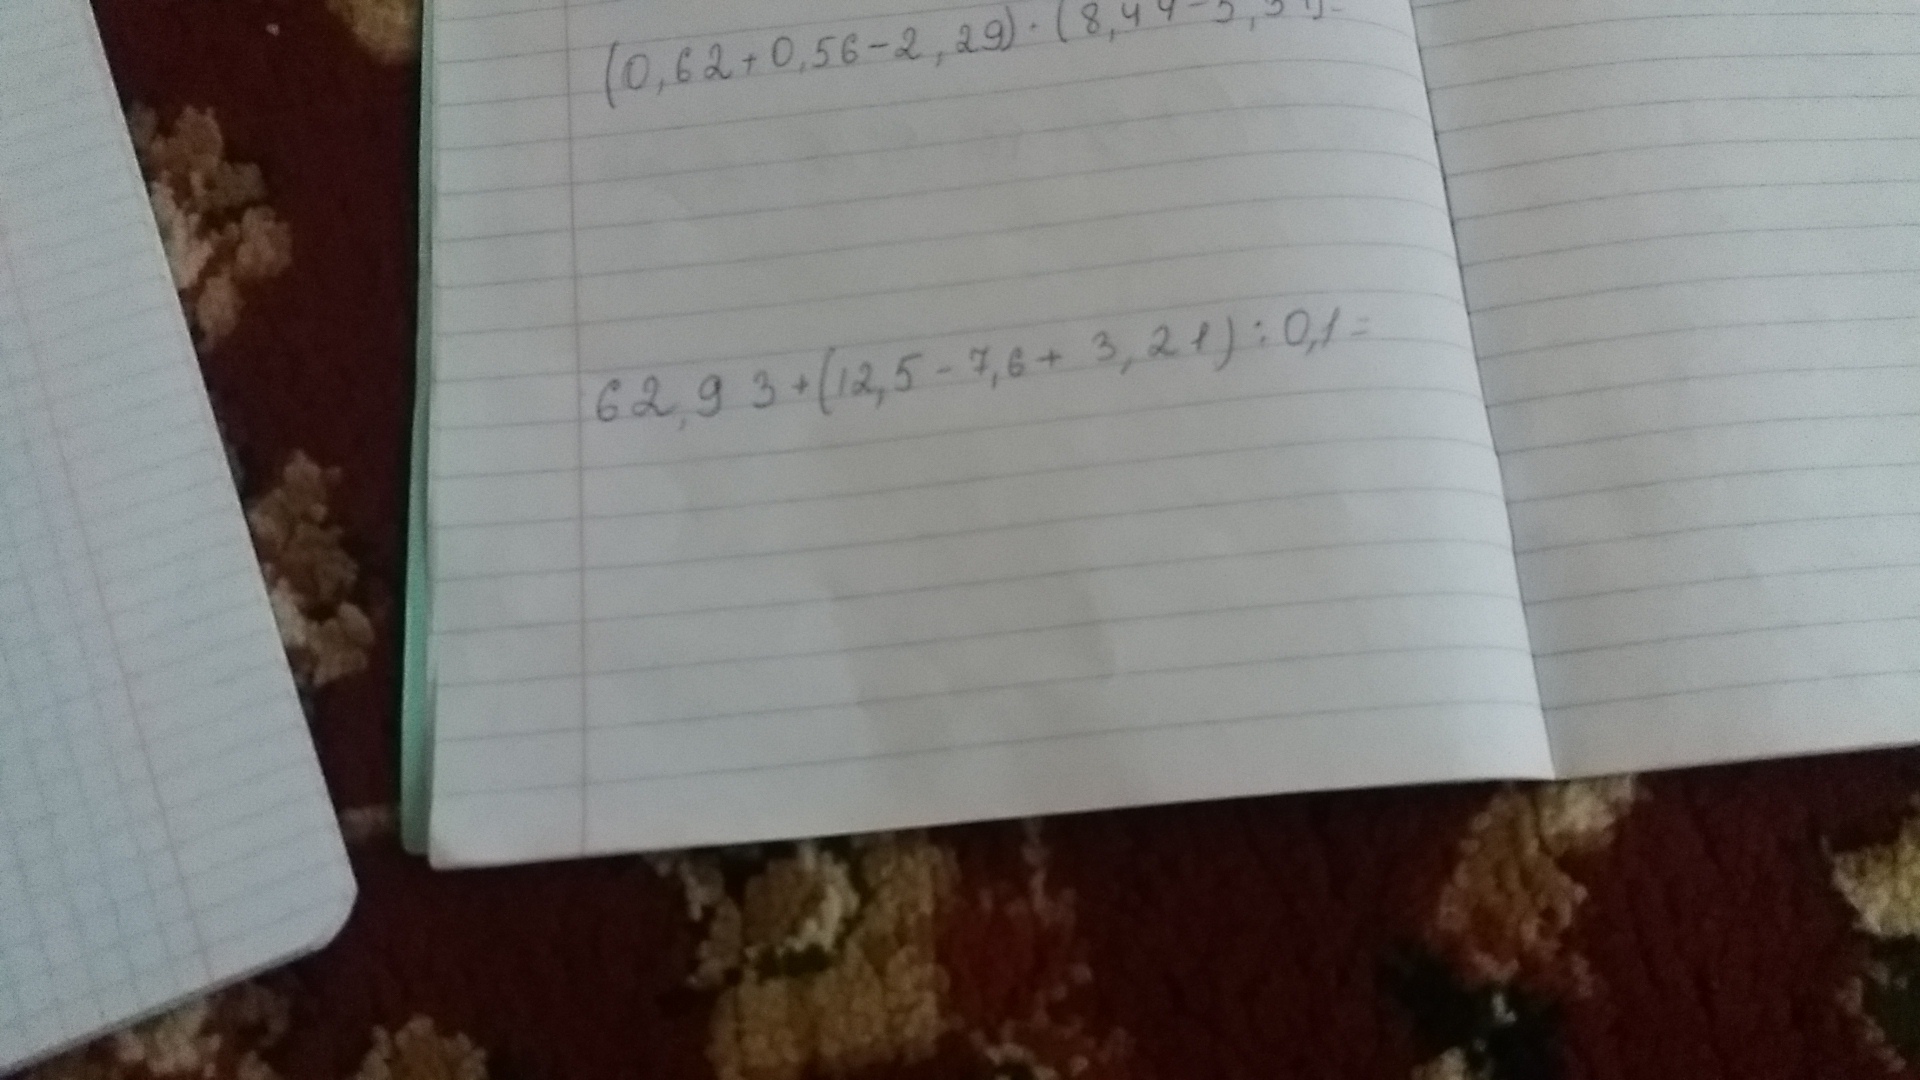 (0,62+0,56-2,29)·(8,44-
62,93+(12,5-7,6+3,21):0,1=